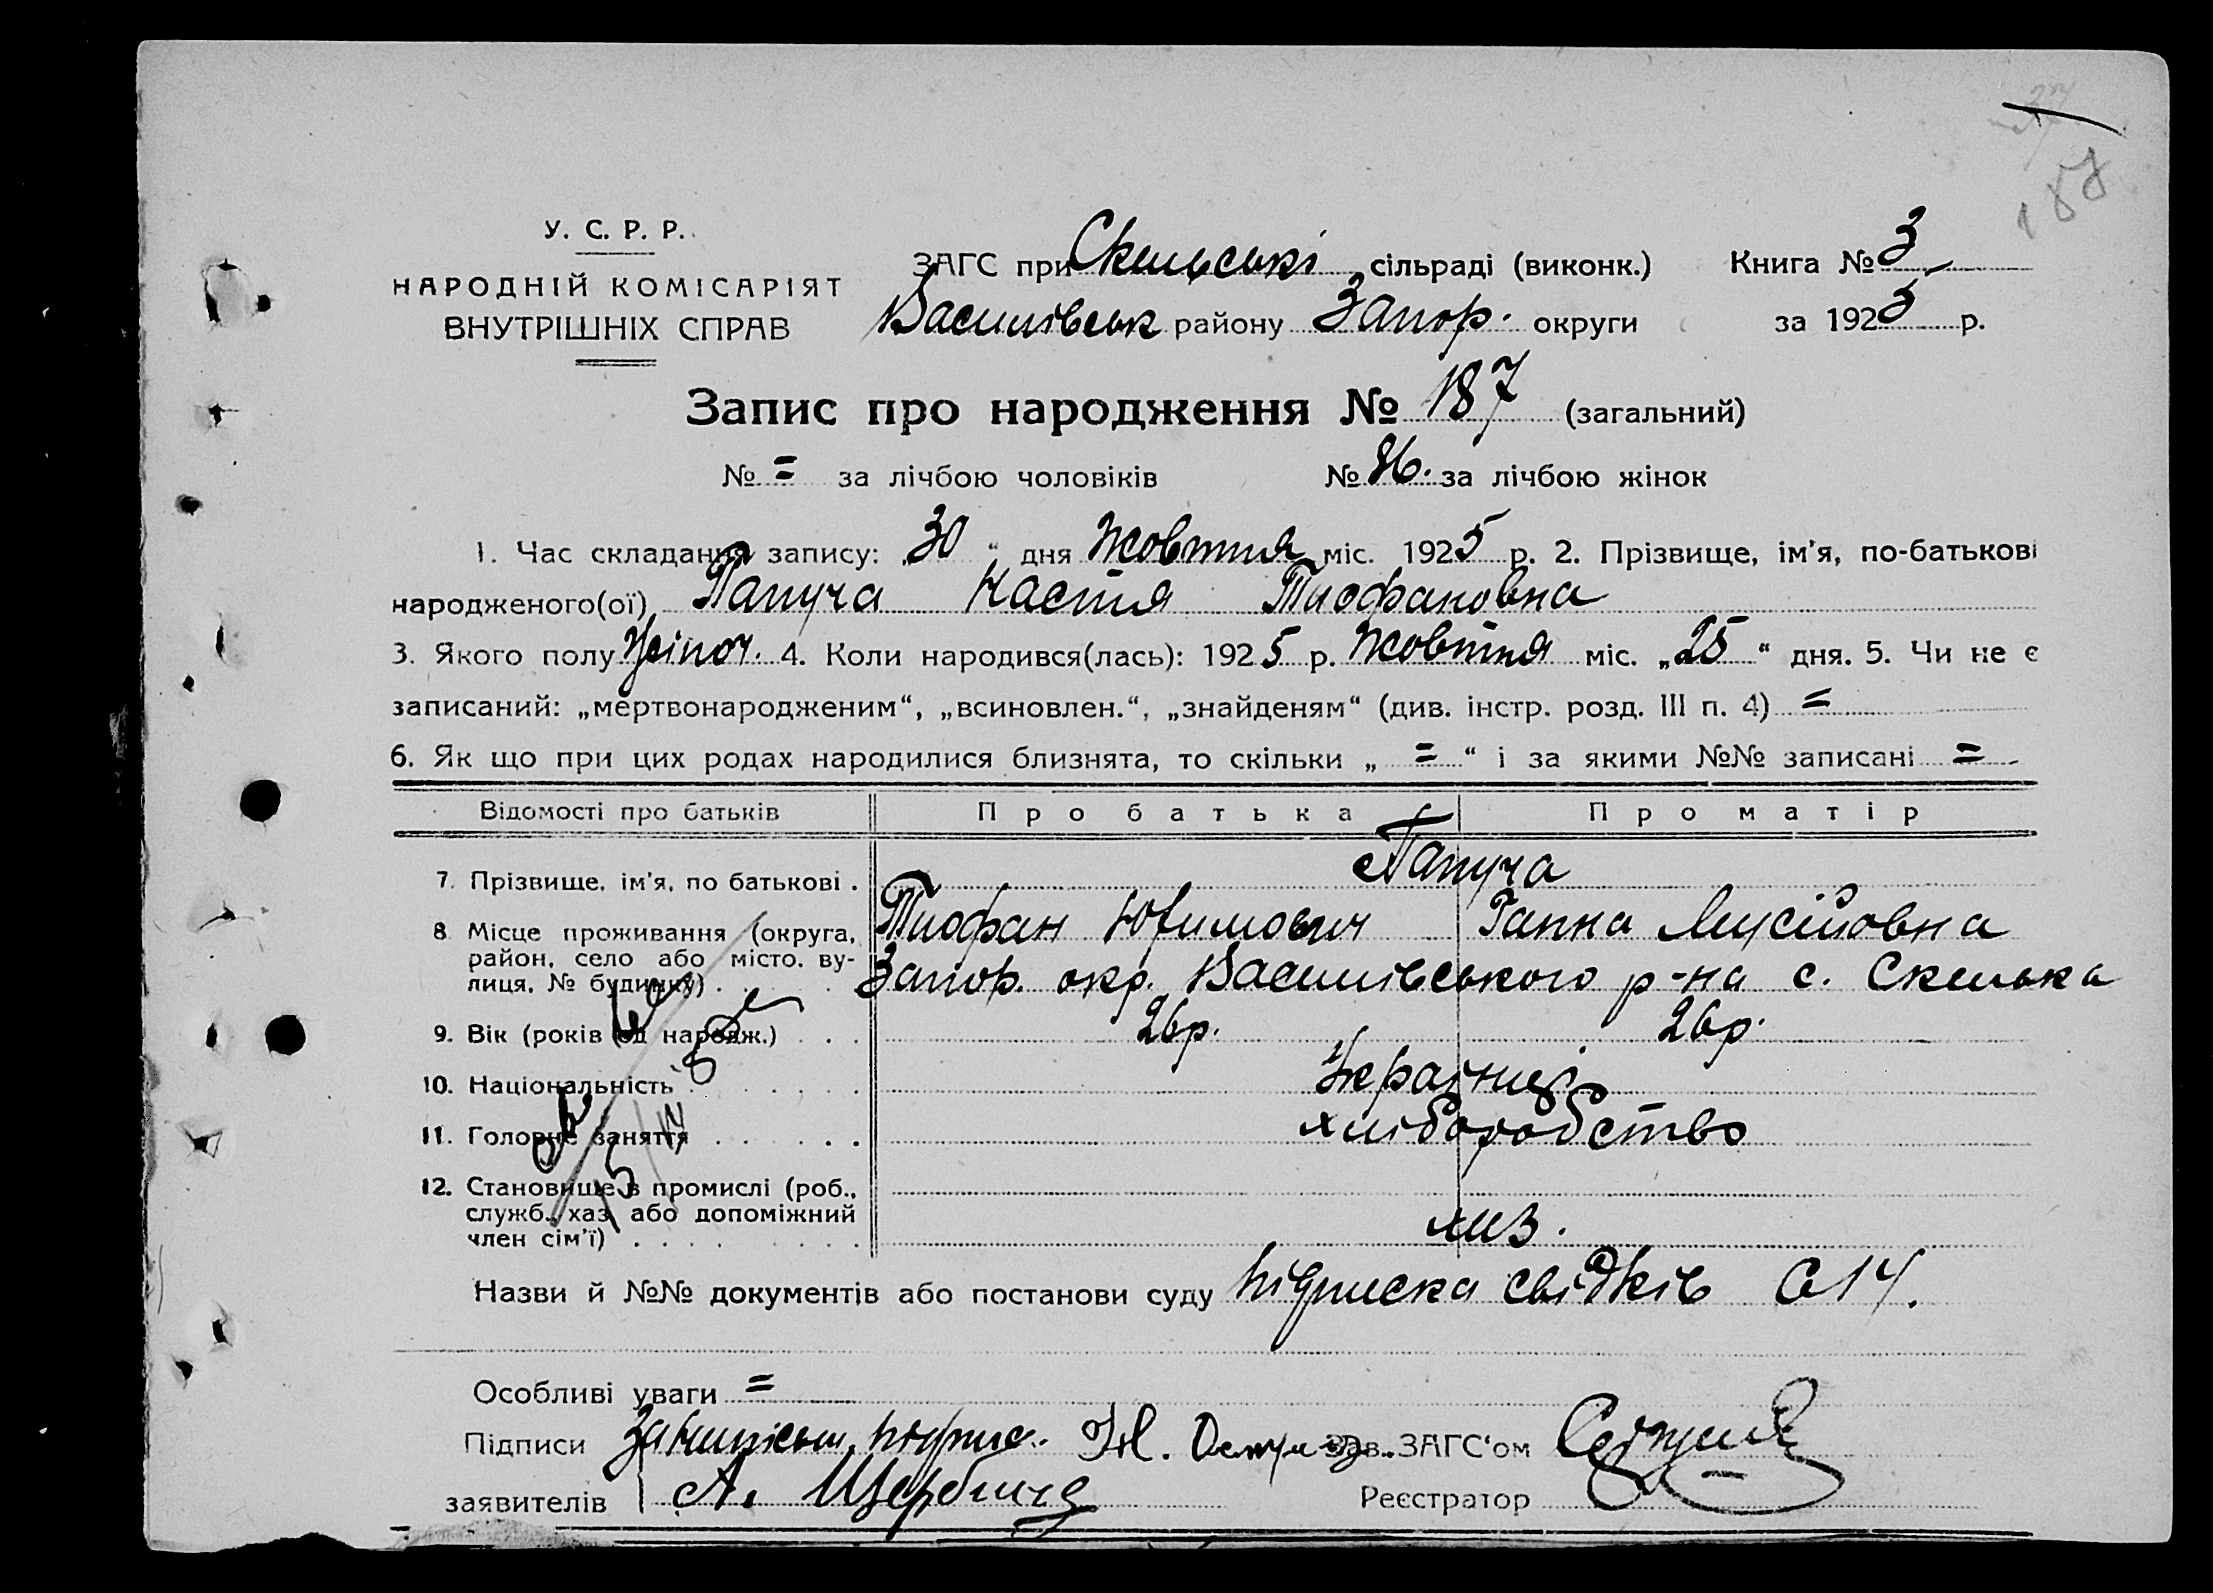 187
У. С. Р. Р.
НАРОДНІЙ КОМІСАРІЯТ
ВНУТРІШНІХ СПРАВ
ЗАГС при Скельські сільраді (виконк.) Книга № 3
Василівськ району Запор. округи за 1925 р.
Запис про народження № 187 (загальний)
№ = за лічбою чоловіків № 86. за лічбою жінок
1. Час складання запису: „30“ дня Жовтня міс. 1925 р. 2. Прізвище, ім'я, по-батькові
народженого(ої) Папуча Настя Тиофановна
3. Якого полу Жіноч. 4. Коли народився(лась): 1925 р. Жовтня міс. „25“ дня. 5. Чи не є
записаний: „мертвонародженим“, „всиновлен.“, „знайденям“ (див. інстр. розд. III п. 4) =
6. Як що при цих родах народилися близнята, то скільки „ = “ і за якими №№ записані =
Відомості про батьків Про батька Про матір
7. Прізвище, ім'я, по батькові . Папуча
Тиофан Юхимович Ганна Мусійовна
8 Місце проживання (округа,
район, село або місто, ву-
лиця, № будинку) . Запор. окр. Василівського р-на с. Скелька
9. Вік (років од народж.) . . . 26р. 26р.
10. Національність . . . . . Українці
11. Головне заняття . . . . . хліборобство
12. Становище в промислі (роб.,
служб., хаз. або допоміжний
член сім'ї) . . . . .
Назви й №№ документів або постанови суду підписка свідків С14.
Особливі уваги =
Підписи підпис. Зав. ЗАГС'ом
заявителів А. Щербина Реєстратор